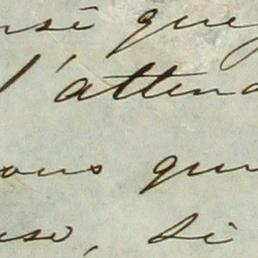 nsé que
l'attend
ous que
use, si